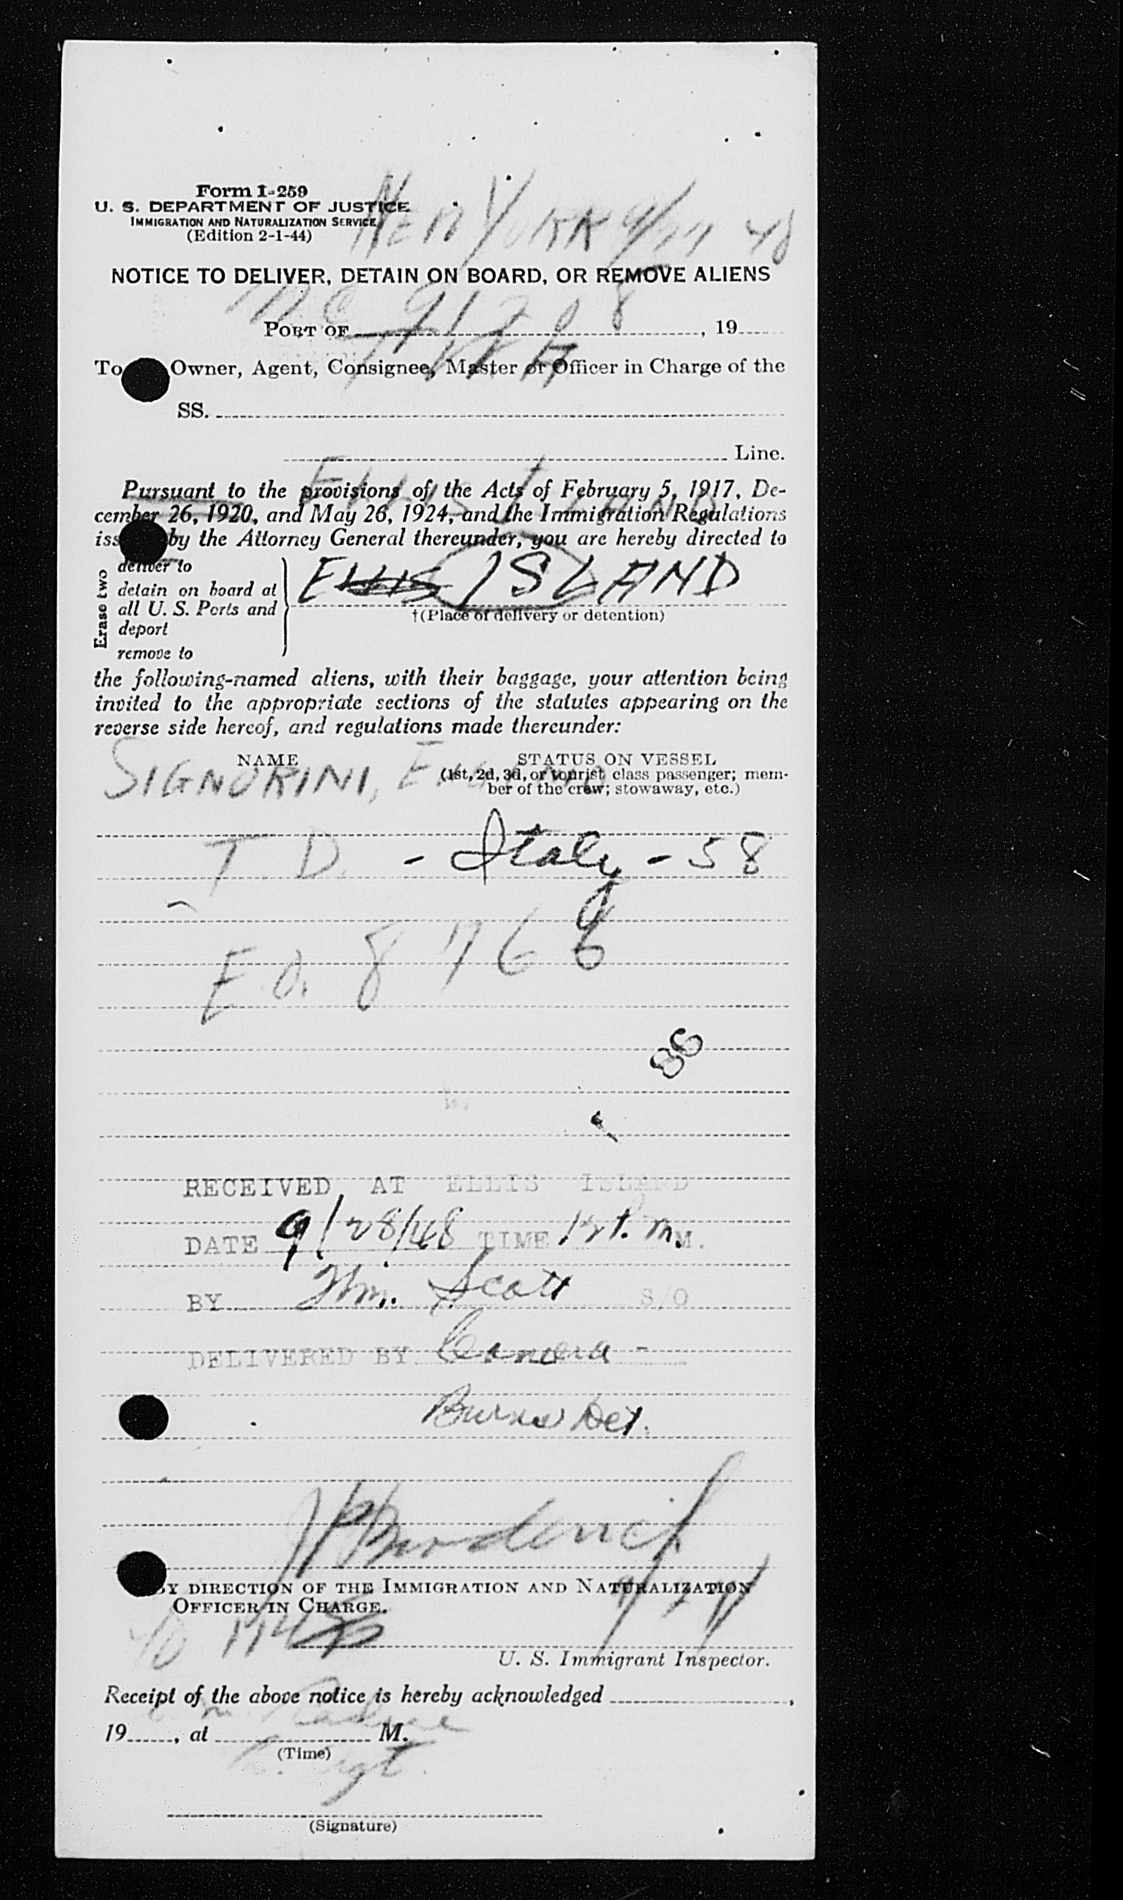 Form I-259
U. S. DEPARTMENT OF JUSTICE
IMMIGRATION AND NATURALIZATION SERVICE
(Edition 2-1-44)
NEW YORK 9/27 48
NOTICE TO DELIVER, DETAIN ON BOARD, OR REMOVE ALIENS
PORT OF , 19
TWA
To Owner, Agent, Consignee, Master or Officer in Charge of the
SS.
Line.
ELLIS ISLAND
Pursuant to the provisions of the Acts of February 5, 1917, De-
cember 26, 1920, and May 26, 1924, and the Immigration Regulations
iss by the Attorney General thereunder, you are hereby directed to
Erase two
deliver to
detain on board at
all U. S. Ports and
deport
remove to
ELLIS ISLAND
†(Place of delivery or detention)
the following-named aliens, with their baggage, your attention being
invited to the appropriate sections of the statutes appearing on the
reverse side hereof, and regulations made thereunder:
NAME STATUS ON VESSEL
(1st, 2d, 3d, or tourist class passenger; mem-
ber of the crew; stowaway, etc.)
SIGNORINI,
T D. - Italy - 58
E.O. 8766
86
RECEIVED AT ELLIS ISLAND
DATE 9/28/48 TIME M.
BY Wm. Scott S/O
DELIVERED BY
Burns Det.
BY DIRECTION OF THE IMMIGRATION AND NATURALIZATION
OFFICER IN CHARGE.
U. S. Immigrant Inspector.
Receipt of the above notice is hereby acknowledged ,
19 , at M.
(Time)
(Signature)